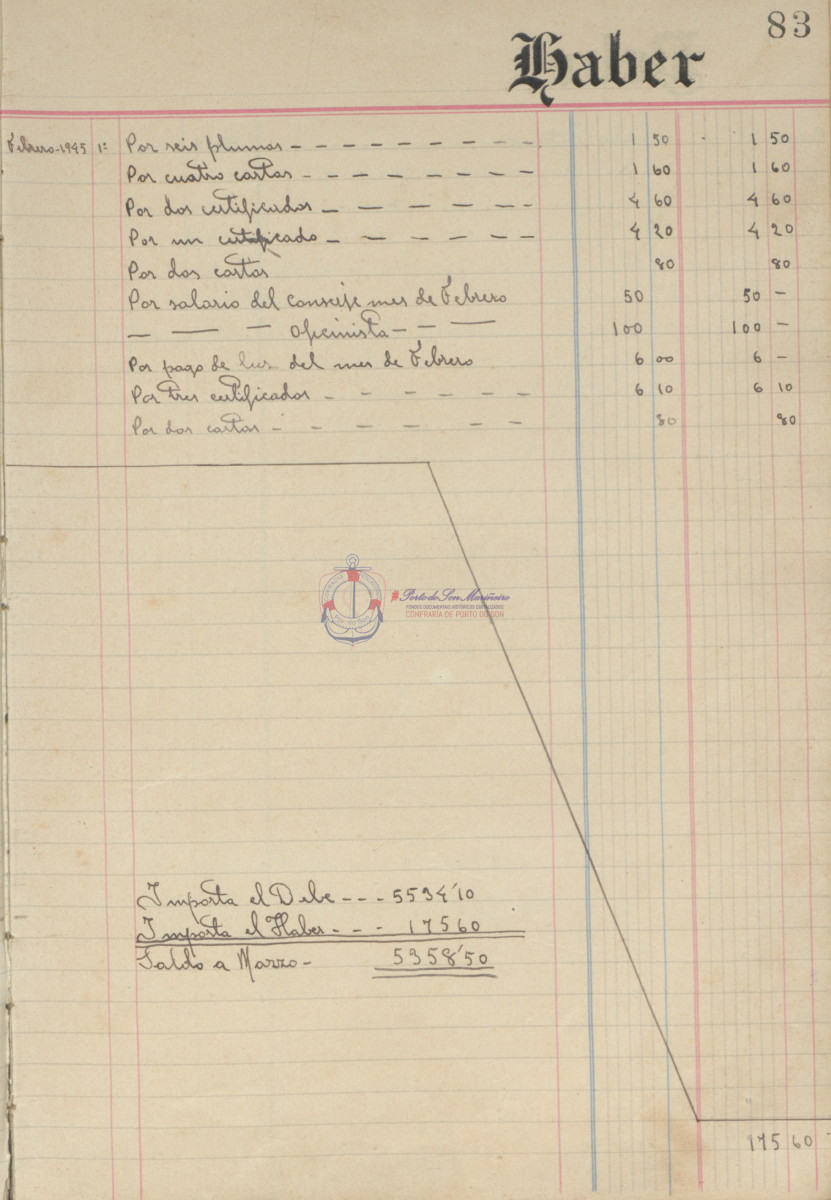 83
Haber
Febrero-1945 1º Por seis plumas - - - - - - - - - 1 50 1 50
Por cuatro cartas - - - - - - - - 1 60 1 60
Por dos certificados - - - - - - - 4 60 4 60
Por un certificado - - - - - - 4 20 4 20
Por dos cartas 80 80
Por salario del conserje mes de Febrero 50 50 -
— — — oficinista - - — 100 100 -
Por pago de luz del mes de Febrero 6 00 6 -
Por tres certificados - - - - - - 6 10 6 10
Por dos cartas - - - - - - 80 80
#Porto do Son Mariñeiro
FONDOS DOCUMENTAIS HISTÓRICOS DIXITALIZADOS
CONFRARÍA DE PORTO DO SON
Importa el Debe - - - 5534'10
Importa el Haber - - - 17560
Saldo a Marzo - 5358'50
175 60